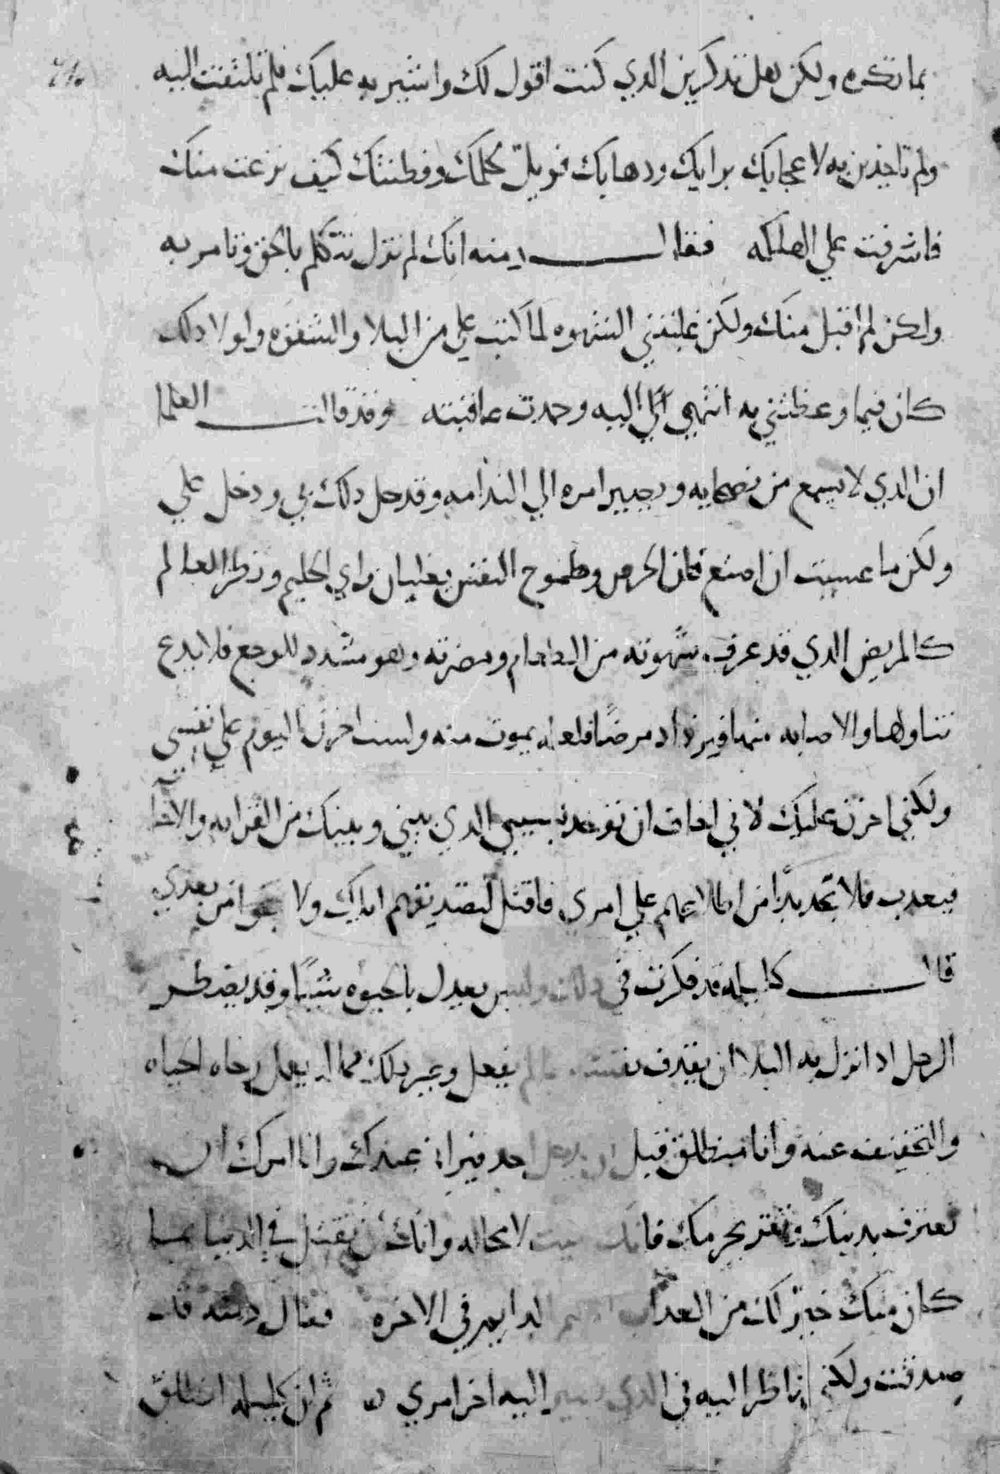 بما تكره ولكن هل تدكرين الدي كنت اقول لك واشير به عليك فلم تلتفت اليه
ولم تاخدين به لا عجابك برايك ودهايك فويل لحلمك وفطنتك كيف نزعت منك
فاشرفت علي الهلكه فقال دمنه انك لم تزل تتكلم بالحق وتامر به
ولكن لم اقبل منك ولكن غلبتني الشهوه لما كتب علي من البلا والشقوه ولولا دلك
كان فيما وعظتني به انتهي الي اليه وحمدت عاقبته وقد قالت العلما
ان الدي لا يسمع من نصحايه يصير امره الي الندامه وقد حل دلك بي ودخل علي
ولكن ما عسيت ان اصنع فان الحرص وطموح النفس يغلبان راي الحليم ونظر العالم
كالمريض الدي قد عرف شهوته من الطعام ومضرته وهو مشدد للوجع فلا يدع
تناولها والاصابه منها فيزداد مرضًا فلعله يموت منه ولست احزن اليوم علي نفسي
ولكني احزن عليك لاني اخاف ان توخد بسببي الدي بيني وبينك من القرابه والاخا
فيعدب فلا تجد بدًا من اطلاعهم علي امري فاقتل لتصديقهم اياك ولا من بعدي
قال كليله قد فكرت في دلك وليس يعدل بالحيوه شيًا وقد يضطر
الرجل ادا نزل به البلا ان يقدف نفسه لم يفعل وغير دلك مما لم يعمل رجاه الحياه
والتخفيف عنه وانا منطلق قبل ان يدخل احد فيراني عندك وانا امرك ان
تعترف بدنبك وتقر بجرمك فانك ميت لا محاله وانك ان تقتل في الدنيا بما
كان منك خير لك من العداب الدايم في الاخره فقال دمنه قد
صدقت ولكني ناظر اليه في الدي يصير اليه اخر امري ثم ان كليله انطلق